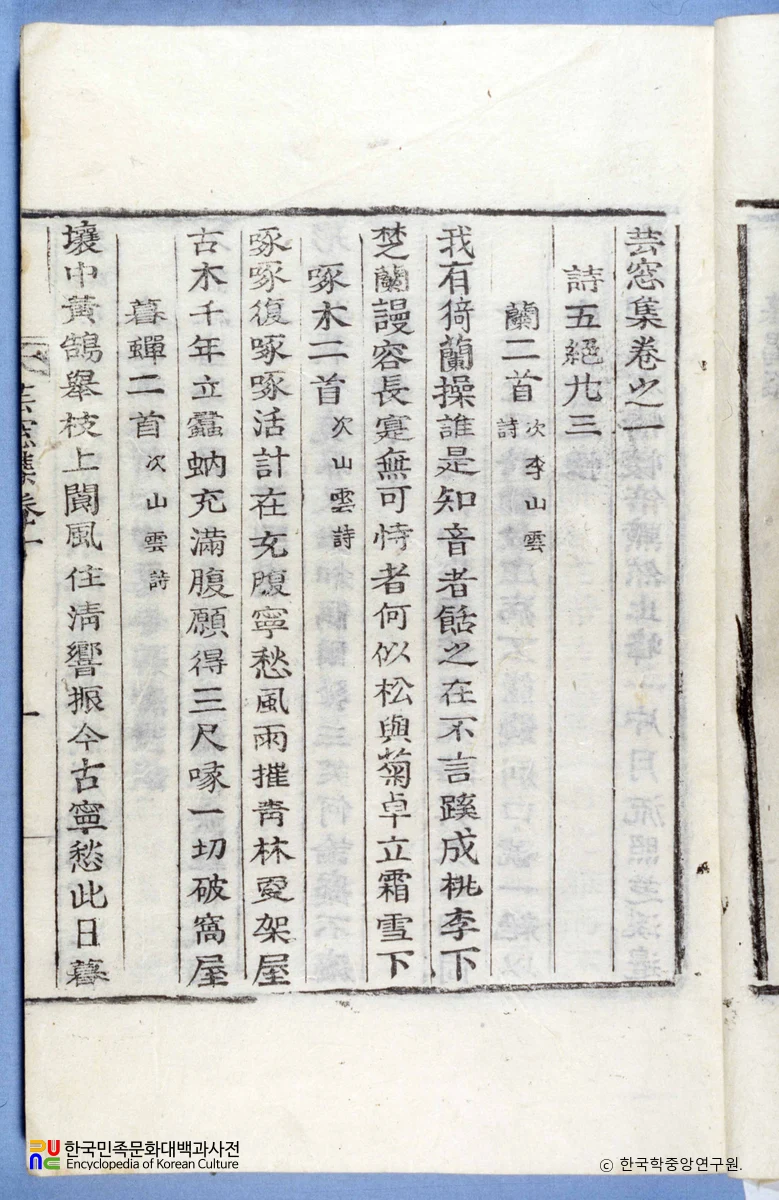 芸窓集卷之一
詩五絶九三
蘭二首 次李山雲詩
我有猗蘭操誰是知音者餂之在不言蹊成桃李下
楚蘭謾容長寔無可恃者何似松與菊卓立霜雪下
啄木二首 次山雲詩
啄啄復啄啄活計在充腹寧愁風雨摧靑林更架屋
古木千年立蠹蚋充滿腹願得三尺喙一切破窩屋
暮蟬二首 次山雲詩
壤中黃鵠擧枝上閬風住淸響振今古寧愁此日暮
芸窓集卷一 一
한국민족문화대백과사전
Encyclopedia of Korean Culture
ⓒ 한국학중앙연구원.